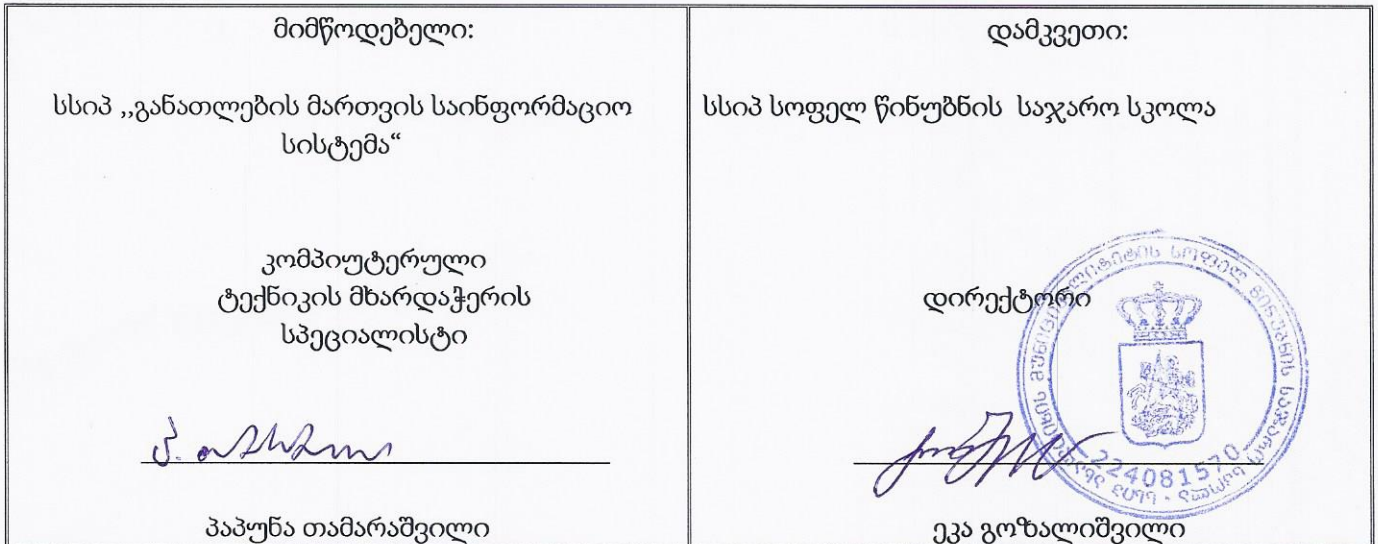 მიმწოდებელი:
სსიპ ,,განათლების მართვის საინფორმაციო
სისტემა“
კომპიუტერული
ტექნიკის მხარდაჭერის
სპეციალისტი
პაპუნა თამარაშვილი
დამკვეთი:
სსიპ სოფელ წინუბნის საჯარო სკოლა
დირექტორი
224081570
ეკა გოზალიშვილი